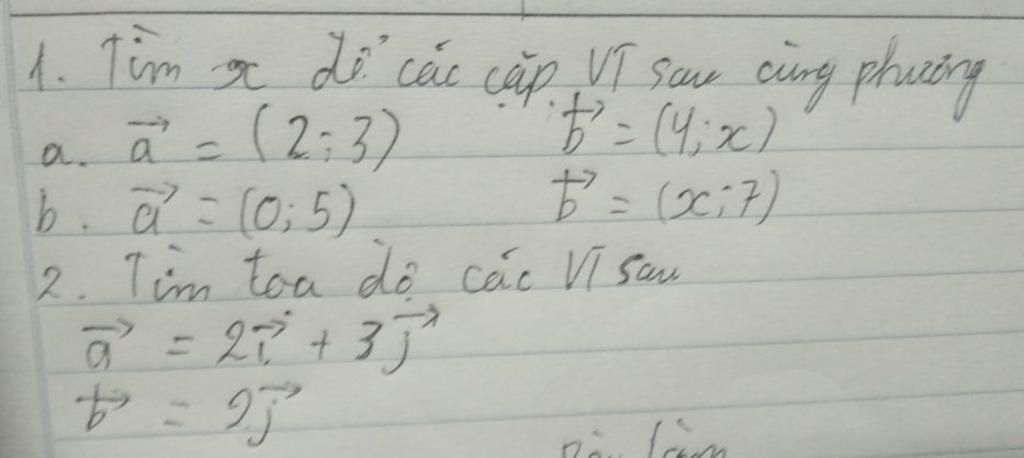 1. Tìm x để các cặp VT sau cùng phương
a. a⃗ = (2; 3) b⃗ = (4; x)
b. a⃗ = (0; 5) b⃗ = (x; 7)
2. Tìm toạ độ các VT sau
a⃗ = 2i⃗ + 3j⃗
b⃗ = 2j⃗